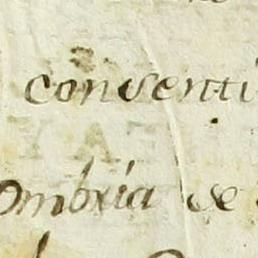 conventi
ombria se